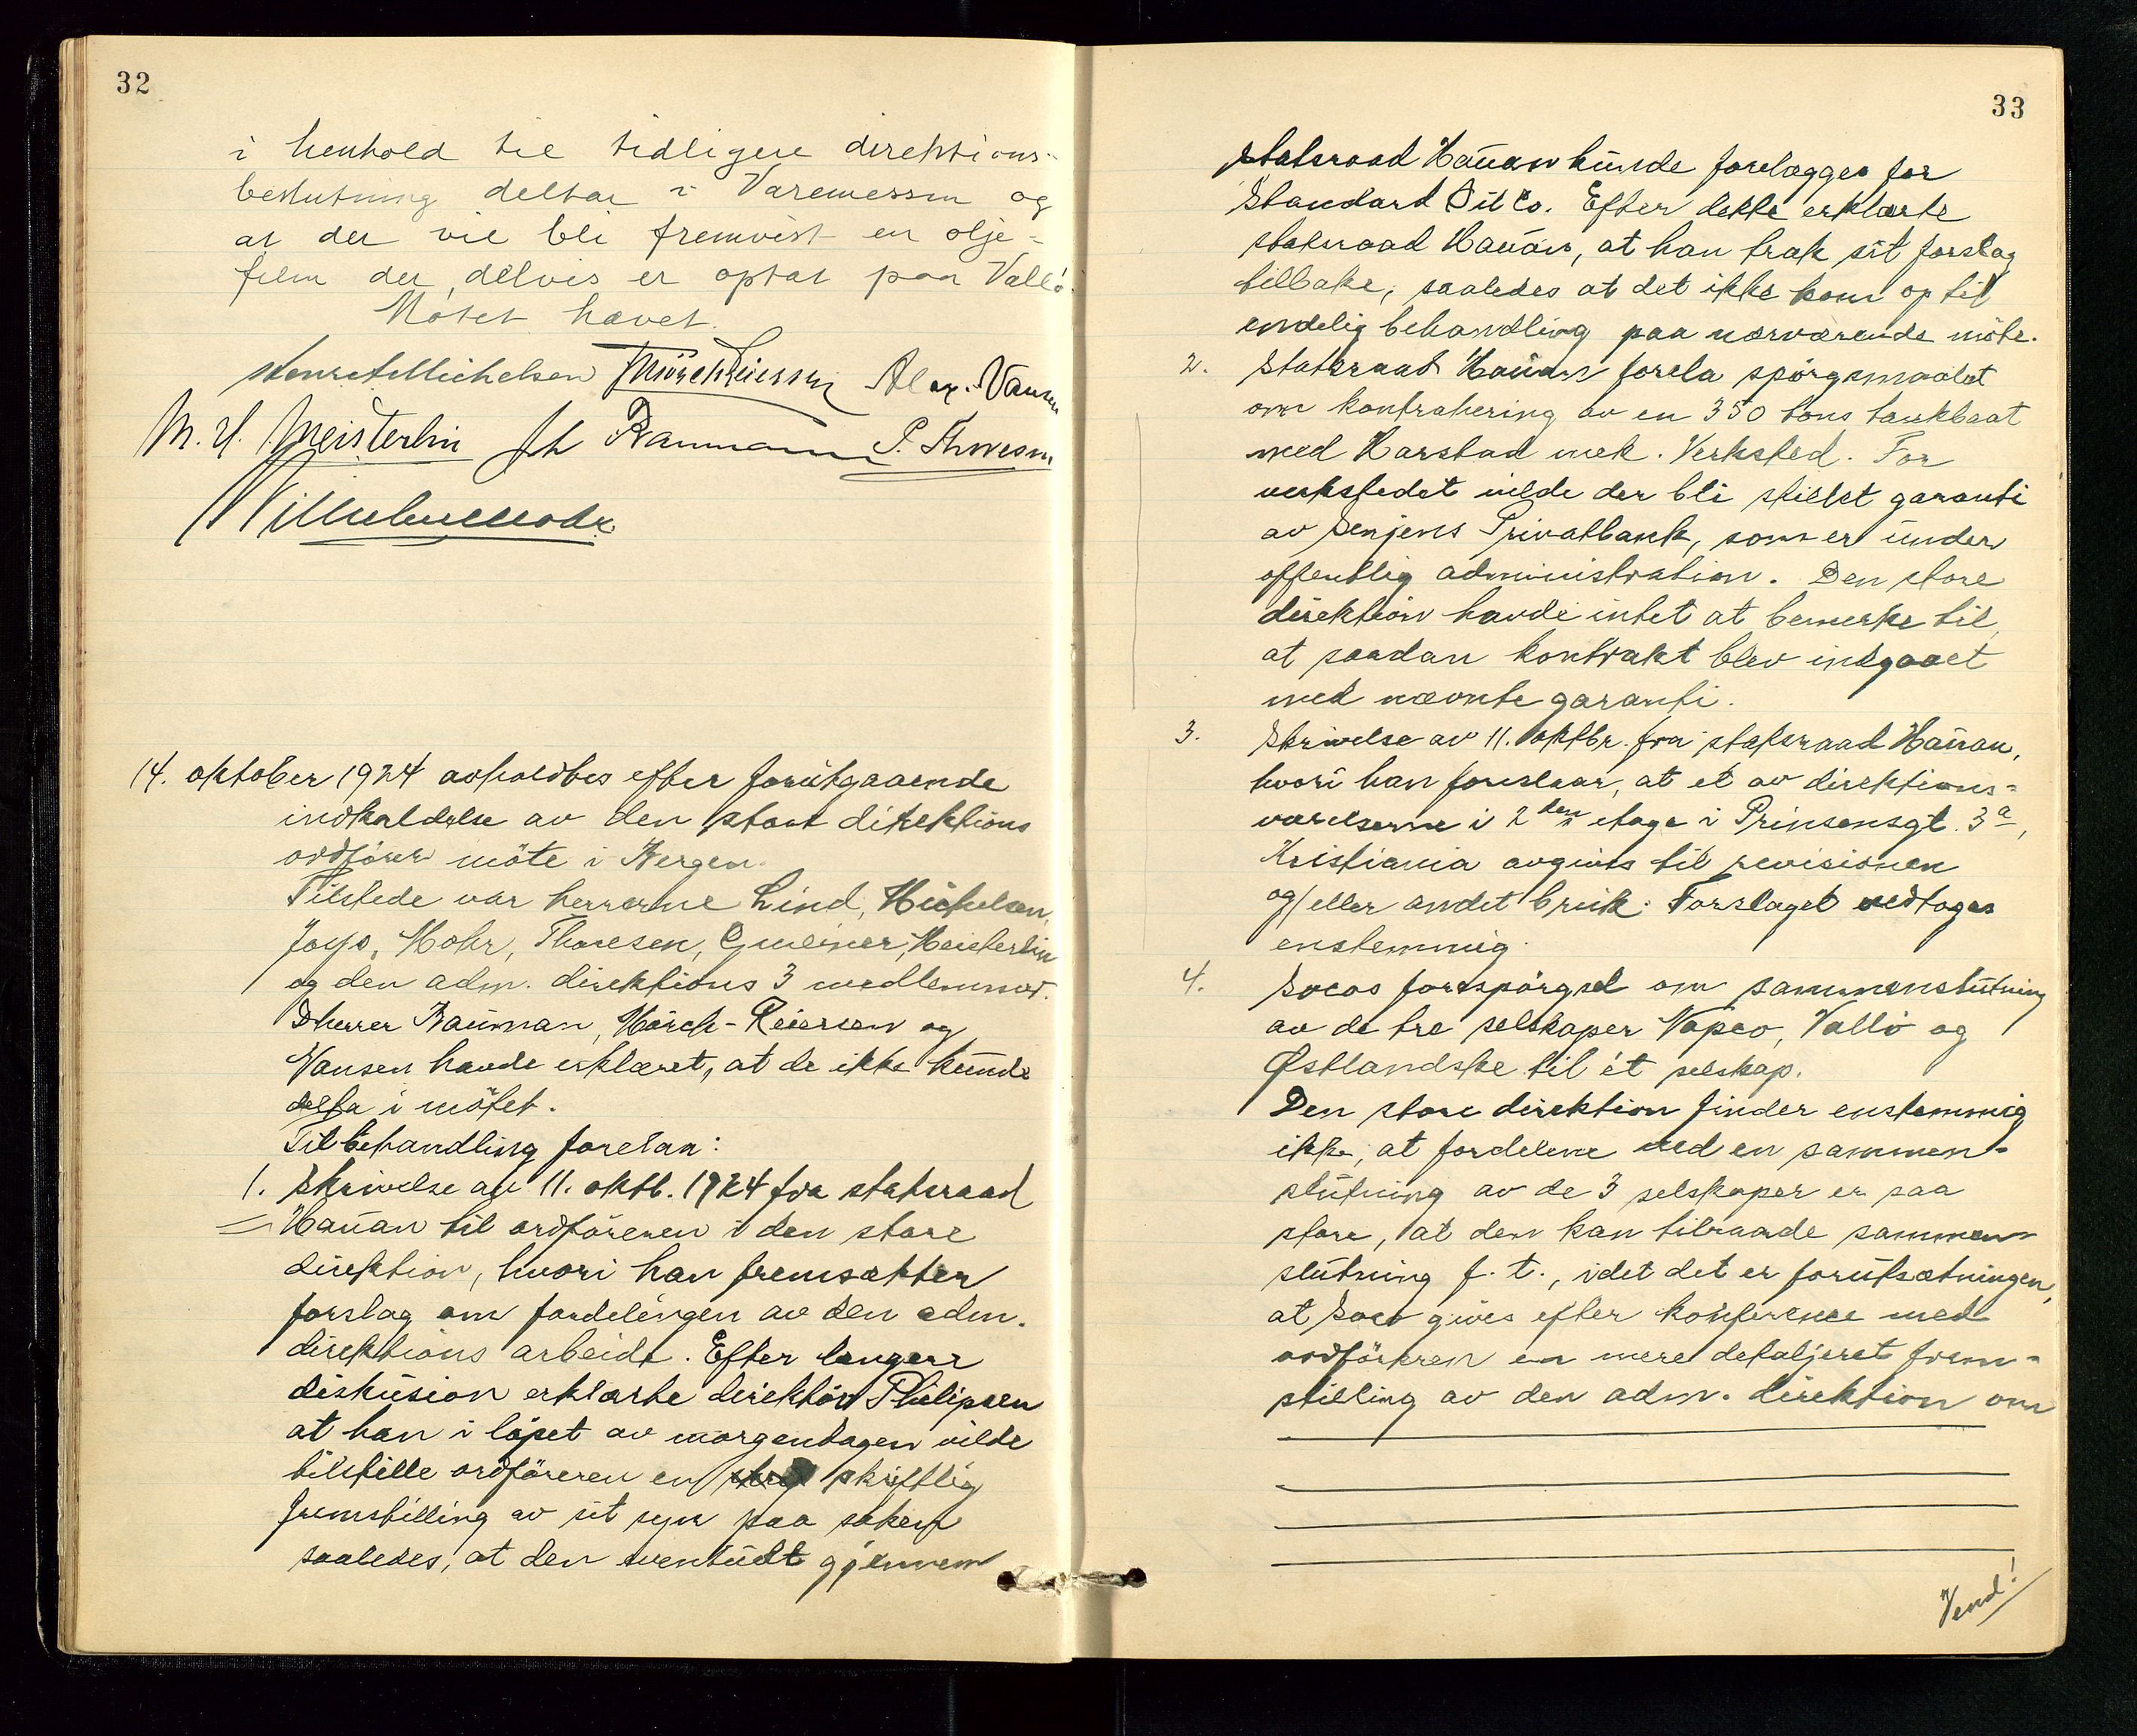 32
i henhold til tidligere direktions-
beslutning deltar i Varemessen og
at der vil bli fremvist en olje-
film der delvis er optat paa Vallö.
Mötet hævet.
Mörch Reiersen Alex. Nansen
M. H. Meisterlin Joh Bauman P. Thoresen
Wilhelm Mohr
14. oktober 1924 avholdtes efter forutgaaende
indkaldelse av den store direktions
ordförer möte i Bergen.
Tilstede var herrerne Lind, Michelsen,
Joys, Mohr, Thoresen, Gmeiner, Meisterlin
og den adm. direktions 3 medlemmer.
Dherrer Bauman, Mörch-Reiersen og
Nansen havde erklæret, at de ikke kunde
delta i mötet.
Til behandling forelaa:
1. Skrivelse av 11. oktb. 1924 fra statsraad
Hauan til ordföreren i den store
direktion, hvori han fremsætter
forslag om fordelingen av den adm.
direktions arbeide. Efter længere
diskusion erklærte direktör Philipsen
at han i löpet av morgendagen vilde
tilstille ordföreren en skriftlig
fremstilling av sit syn paa saken
saaledes, at den eventuelt gjennem
33
statsraad Hauan kunde forelægges for
Standard Oil Co. Efter dette erklærte
statsraad Hauan, at han trak sit forslag
tilbake, saaledes at det ikke kom op til
endelig behandling paa nærværende möte.
2. Statsraad Hauan forela spörgsmaalet
om kontrahering av en 350 tons tankbaat
med Harstad mek. Verksted. For
verkstedet vilde der bli stillet garanti
av Senjens Privatbank, som er under
offentlig administration. Den store
direktion havde intet at bemerke til,
at saadan kontrakt blev indgaaet
med nævnte garanti.
3. Skrivelse av 11. oktbr. fra statsraad Hauan,
hvori han foreslaar, at et av direktions-
værelserne i 2den etage i Prinsensgt. 3a,
Kristiania avgives til revisionen
og/eller andet bruk. Forslaget vedtoges
enstemmig.
4. Socos forespörgsel om sammenslutning
av de tre selskaper Vapco, Vallö og
Østlandske til ét selskap.
Den store direktion finder enstemmig
ikke, at fordelene ved en sammen-
slutning av de 3 selskaper er saa
store, at den kan tilraade sammen-
slutning f. t., idet det er forutsætningen,
at Soco gives efter konference med
ordföreren en mere detaljeret frem-
stilling av den adm. direktion om
Vend!